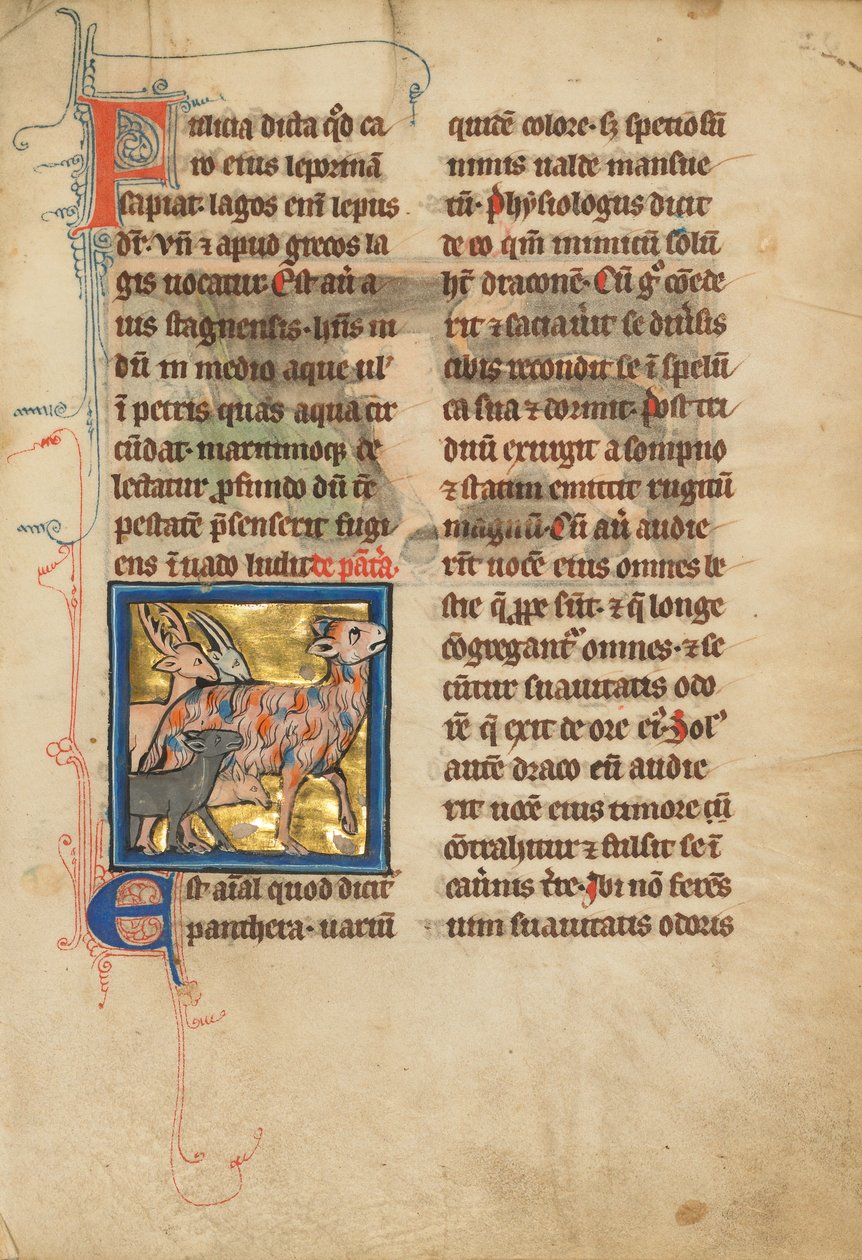 Fulicia dicta qd̕ ca
ro eius leporinā
sapiat· lagos enī lepus
dr̄· vn̄ ⁊ apud grecos la
gis uocatur· Est aūt a
uis stagnensis· hn̄s ni
dū in medio aque ul̕
ī petris quas aqua cir
cūdat· maritimoqꝫ de
lectatur ꝓfundo dū tē
pestatē p̄senserit fugi
ens ī uado ludit de pāt̄a·
Est aīal quod dicit̕
panthera· uariū
quidē colore· sꝫ spetiosū
nimis ualde mansue
tū· Physiologus dicit
de eo qm̄ inimicū solū
ht̄ draconē· Cū gͦ cōede
rit ⁊ saciau̕it se diu̕sis
cibis recondit se ī spelū
ca sua ⁊ dormit· Post tri
duū exurgit a sompno
⁊ statim emittit rugitū
magnū· Cū aūt audie
rīt uocē eius omnes be
stie q̄ ꝓpe sūt· ⁊ q̄ longe
cōgregant̕ omnes· ⁊ se
cūtur suauitatis odo
rē q̄ exit de ore ei᾿· Sol᾿
autē draco cū audie
rit uocē eius timore
cōtrahitur ⁊ fulsit se ī
cau̕nis t̄re· Ibi nō ferēs
uim suauitatis odoris